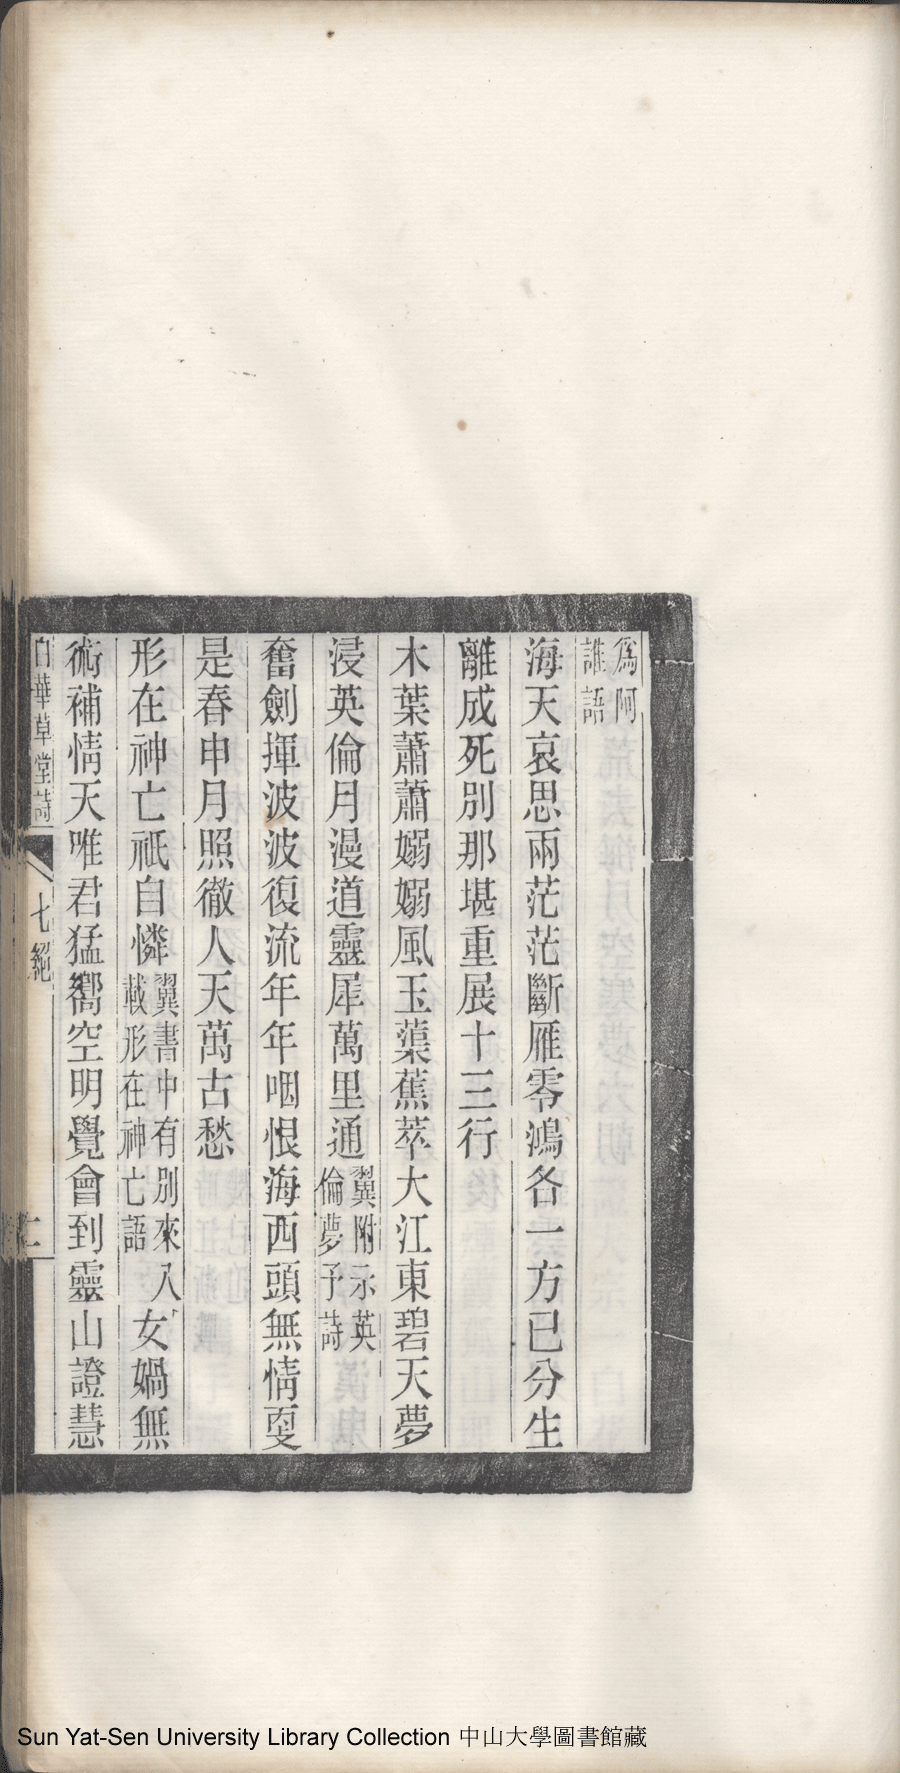 爲阿
誰語
海天哀思兩茫茫斷雁零鴻各一方已分生
離成死別那堪重展十三行
木葉蕭蕭嫋嫋風玉蕖蕉萃大江東碧天夢
浸英倫月漫道靈犀萬里通翼附示英
倫夢予詩
奮劍揮波波復流年年咽恨海西頭無情更
是春申月照徹人天萬古愁
形在神亡祇自憐翼書中有別來
載形在神亡語入女媧無
術補情天唯君猛嚮空明覺會到靈山證慧
白華草堂詩
七絕
Sun Yat-Sen University Library Collection 中山大學圖書館藏